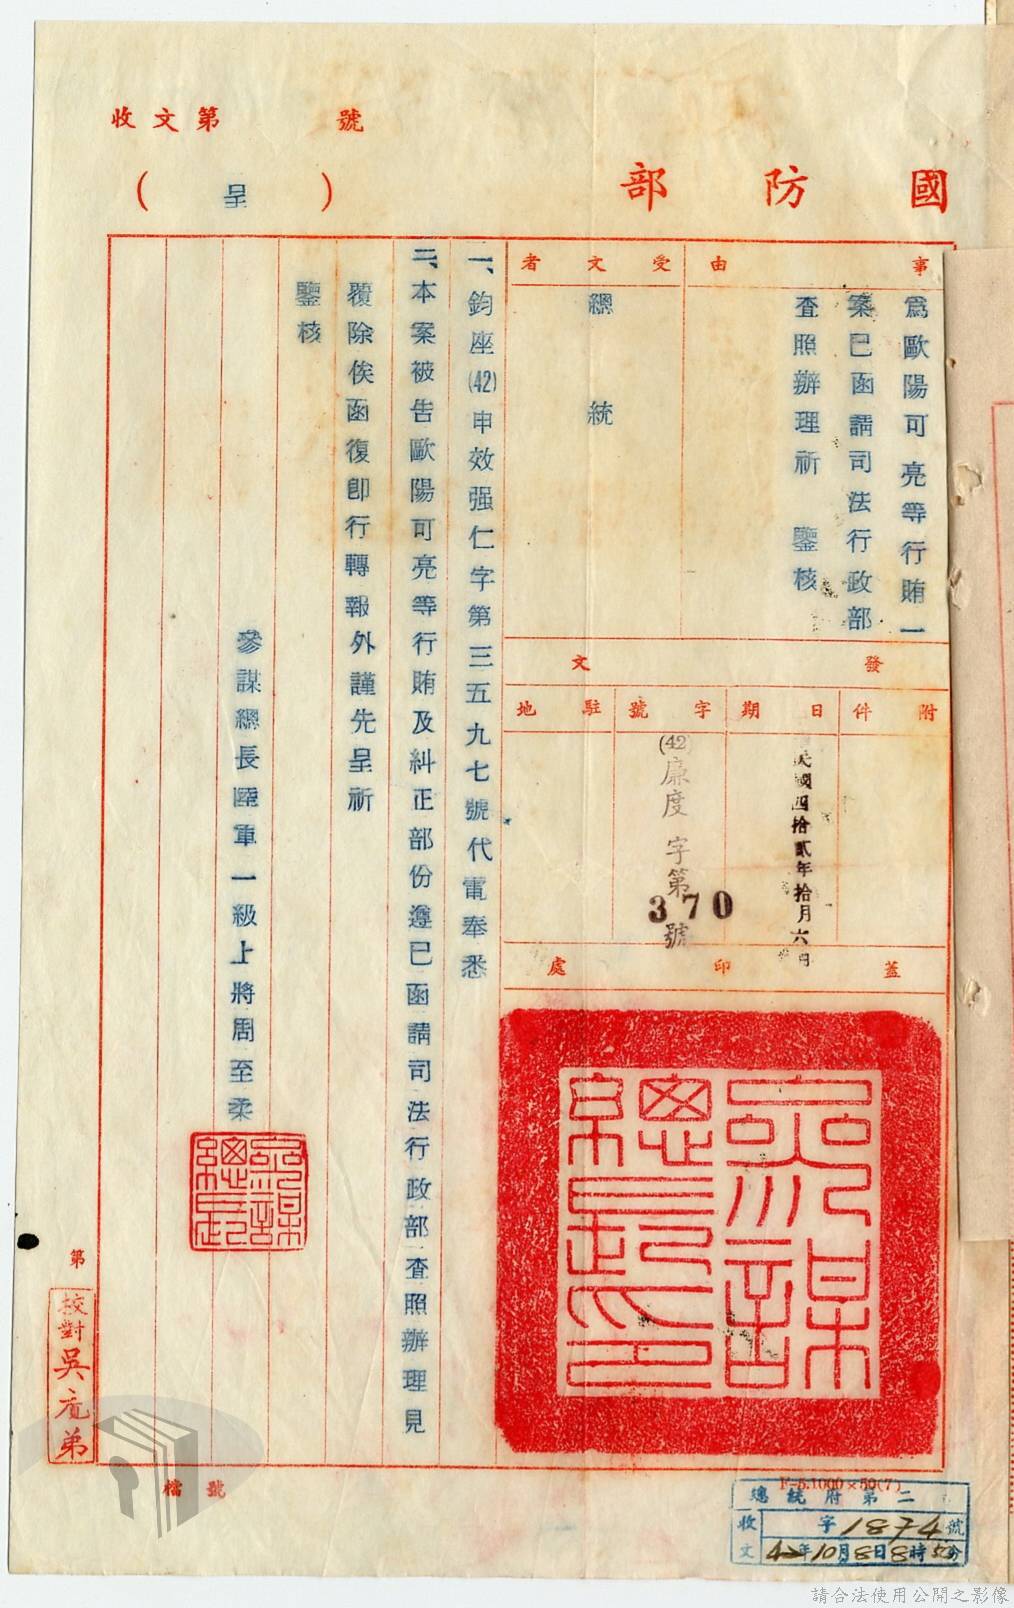 收文第　　　號
國防部
（呈）
事由
為歐陽可亮等行賄一
案已函請司法行政部
查照辦理祈　鑒核
受文者
總統
發文
附件
日期
民國四拾貳年拾月六日
字號
(42)廉度字第370號
駐地
蓋印處
參謀總長之印
一、鈞座(42)申效强仁字第三五九七號代電奉悉
二、本案被告歐陽可亮等行賄及糾正部份遵已函請司法行政部查照辦理見
覆除俟函復即行轉報外謹先呈祈
鑒核
參謀總長陸軍一級上將周至柔
參謀總長
第
校對吳
弟
檔號
F-5.1000×50(7)
總統府第二
收文
字1874號
42年10月8日8時50分
請合法使用公開之影像